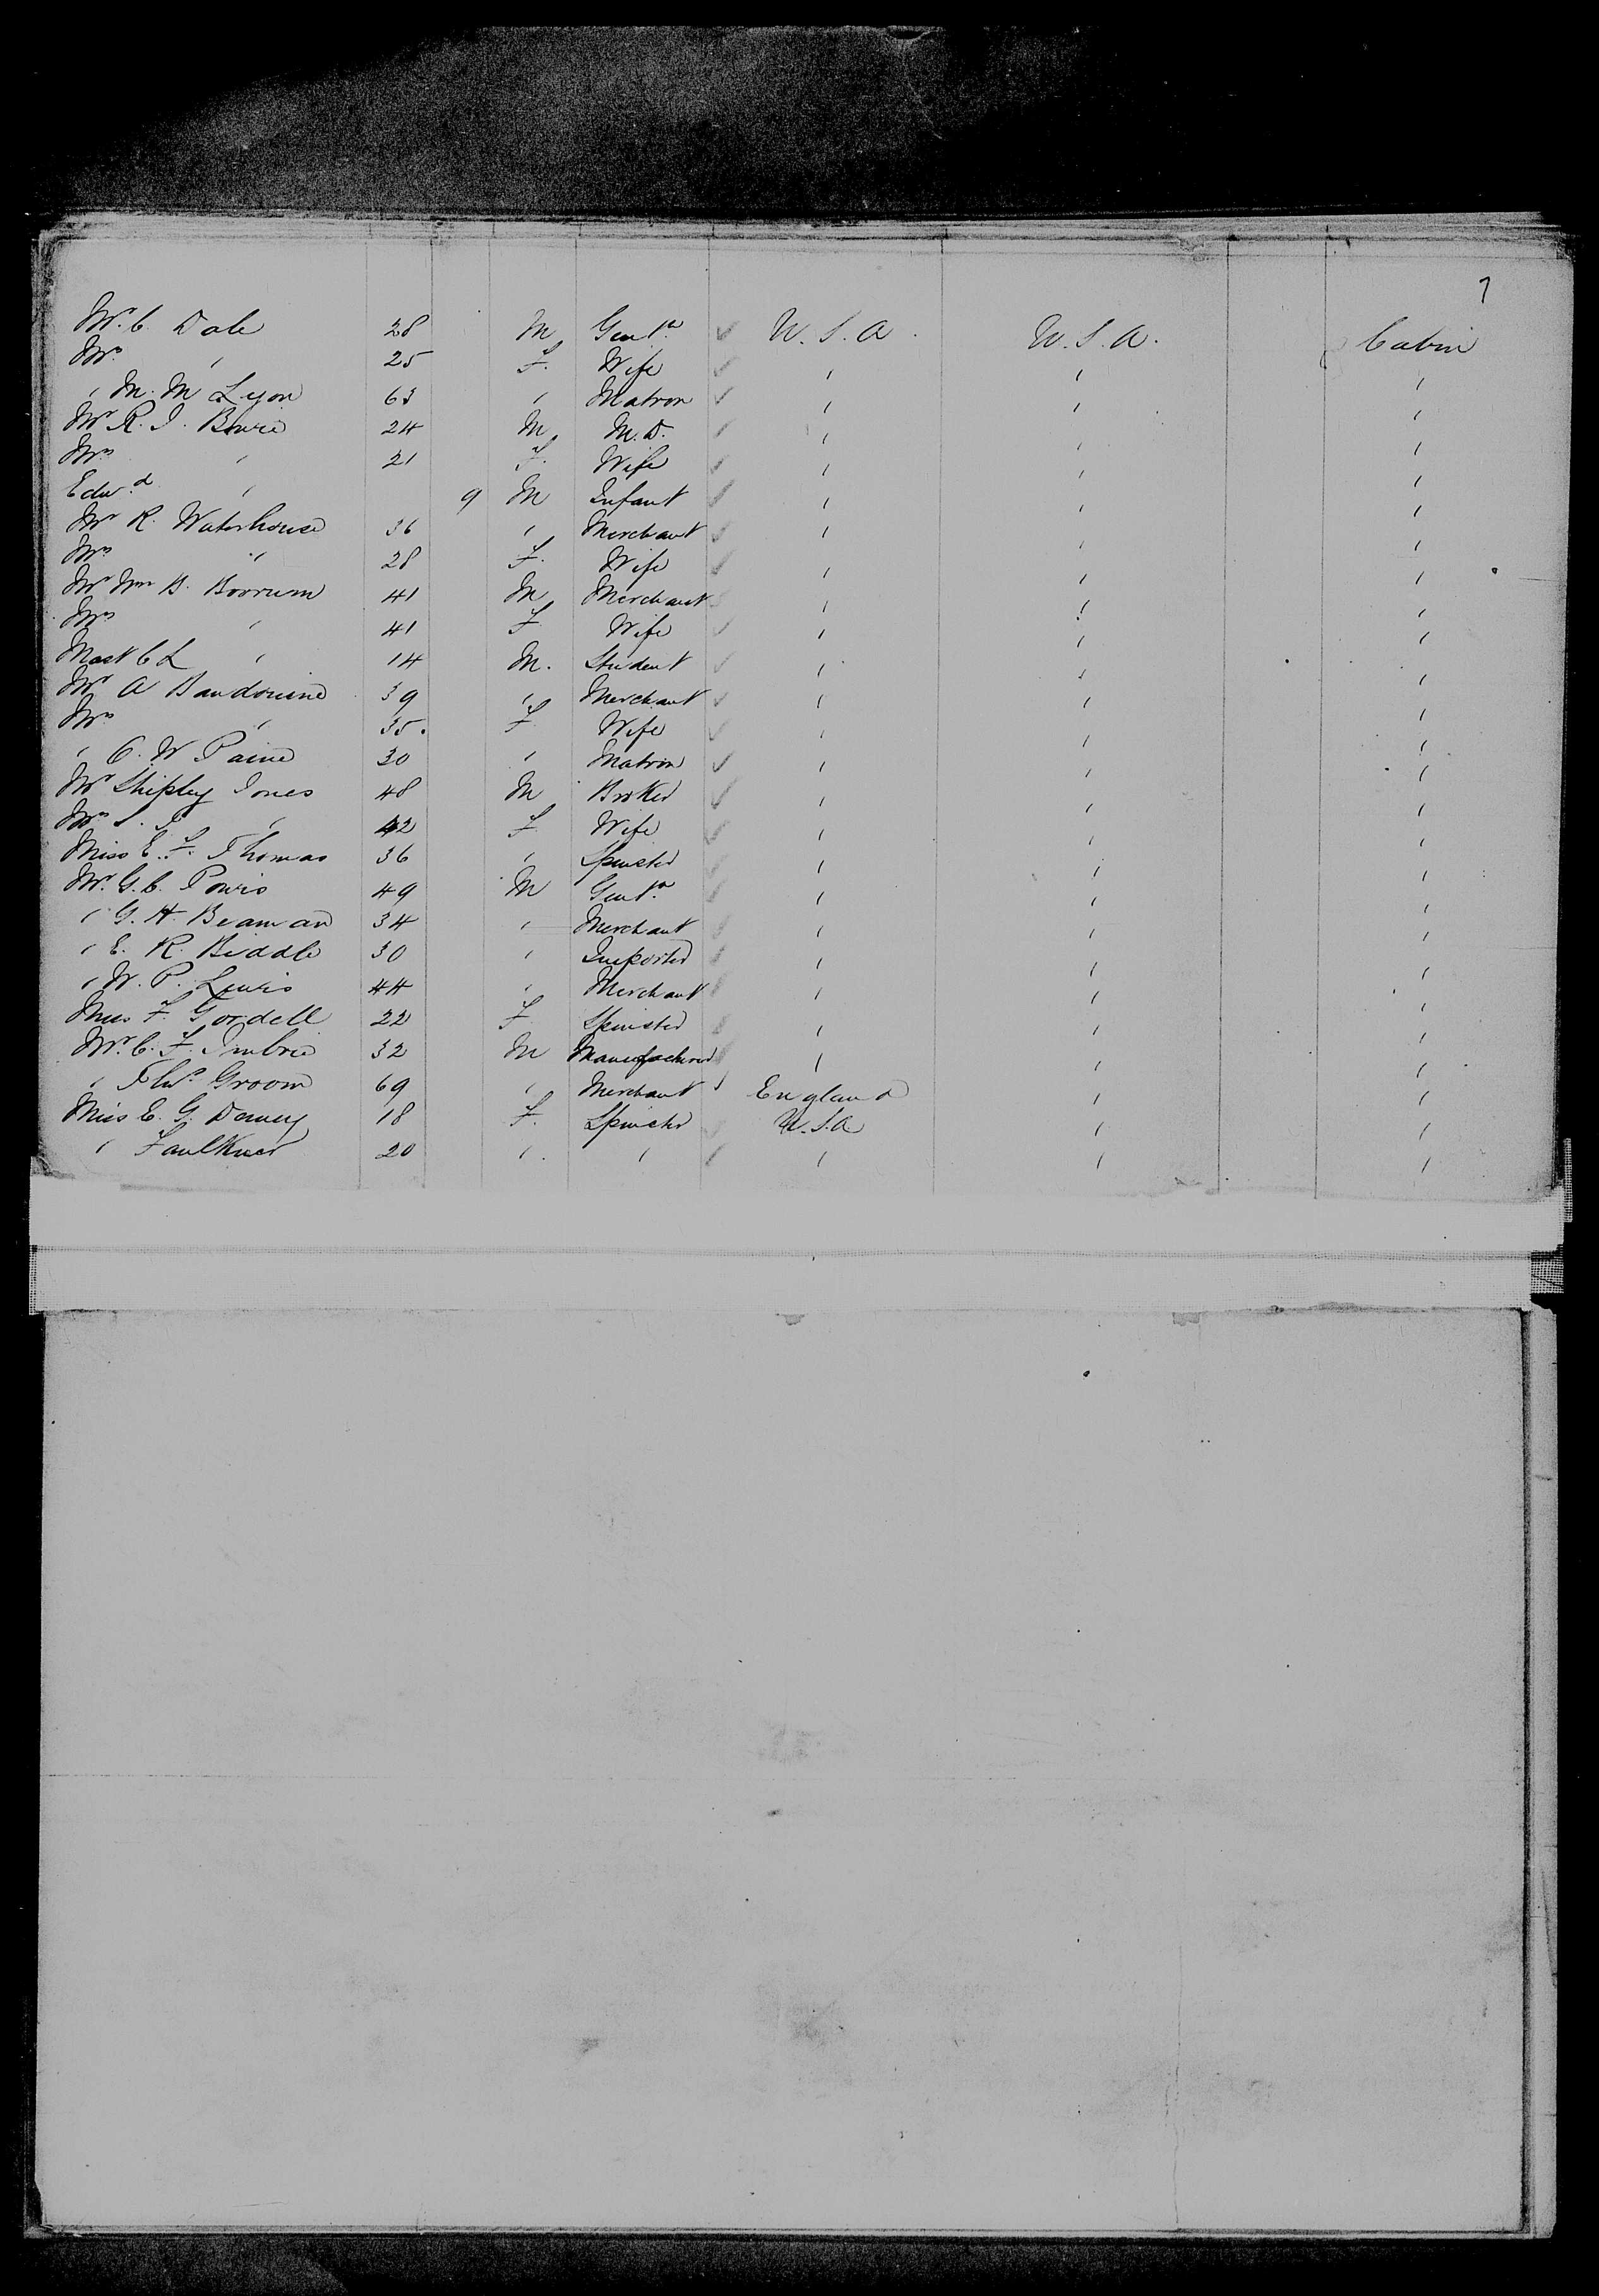 7
Mr. C. Dale 28 M Gent.n U. S. A. U. S. A. Cabin
Mrs " 25 F. Wife " " "
" M. M Lyon 63 " Matron " " "
Mr R. J. Bowie 24 M M. D. " " "
Mrs " 21 F. Wife " " "
Edw.d " 9 M Infant " " "
Mr R. Waterhouse 36 " Merchant " " "
Mrs " 28 F. Wife " " "
Mr Wm B. Boorum 41 M Merchant " " "
Mrs " 41 F Wife " " "
Mast C L " 14 M. Student " " "
Mr A Baudouine 39 " Merchant " " "
Mrs " 35. F Wife " " "
" C. W Paine 30 " Matron " " "
Mr Shipley Jones 48 M Broker " " "
Mrs S. I " 42 F Wife " " "
Miss E. F. Thomas 36 " Spinster " " "
Mr. G. C. Powis 49 M Gent.n " " "
" G. H. Beaman 34 " Merchant " " "
" E. R. Biddle 30 " Importer " " "
" W. P. Lewis 44 " Merchant " " "
Miss F. Gordell 22 F Spinster " " "
Mr. C. F. Imbrie 32 M Manufacturer " " "
" Groom 69 " Merchant England " "
Miss E. G. 18 F. Spinster U. S. A " "
" Faulkner 20 " " " " "